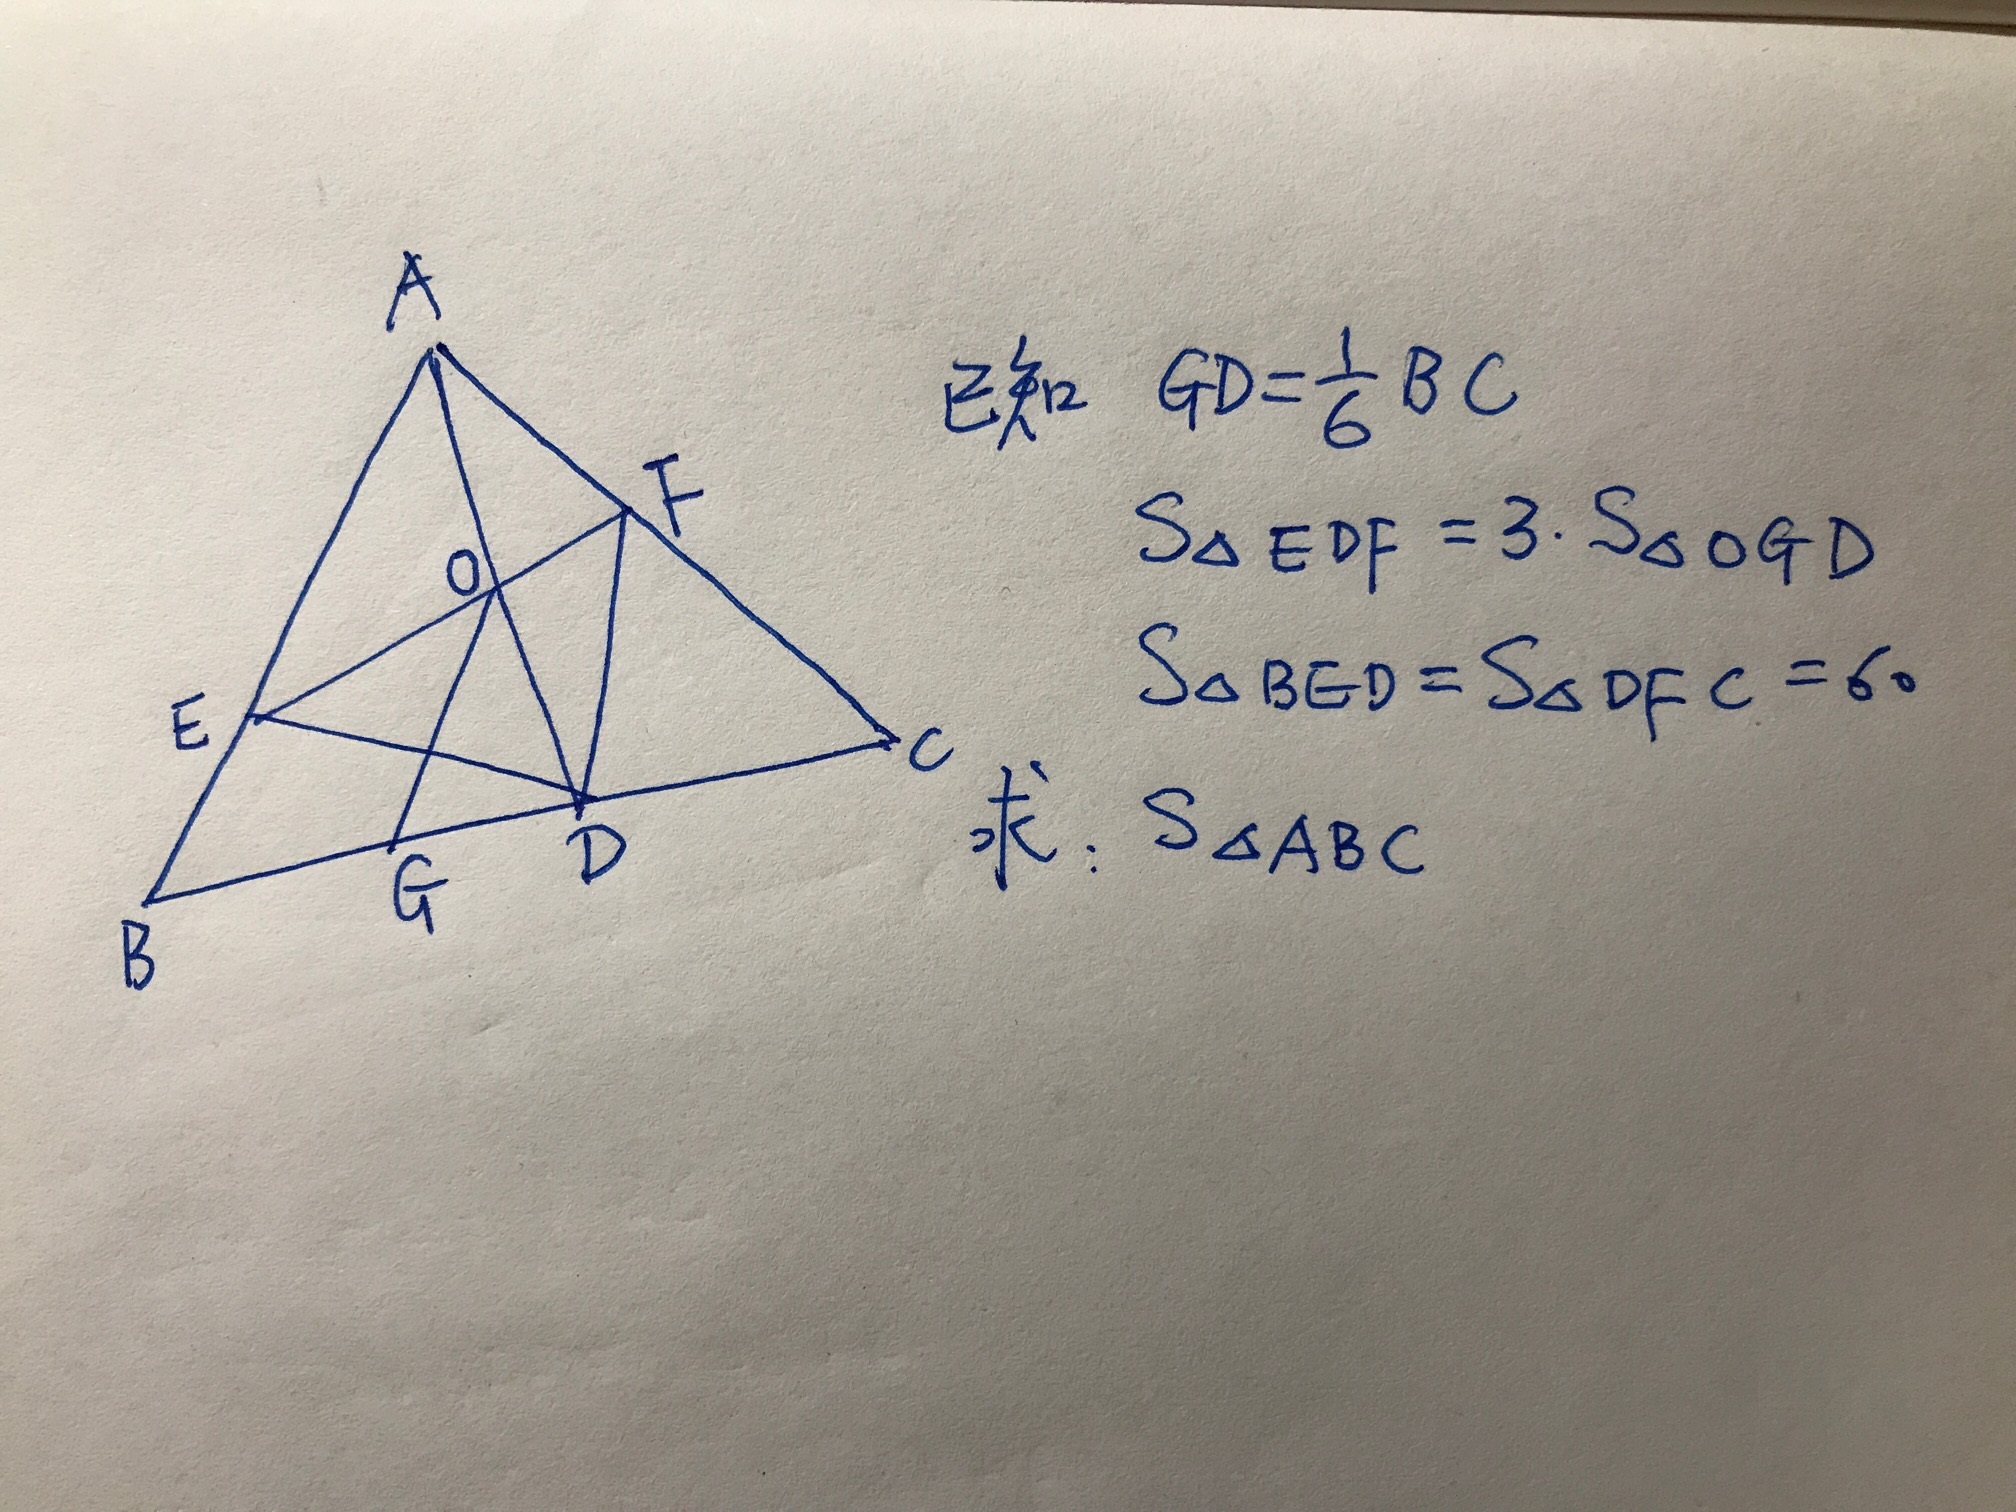 A
F
O
E
C
G
D
B
已知 GD=1/6 BC
S△EDF=3·S△OGD
S△BED=S△DFC=60
求: S△ABC